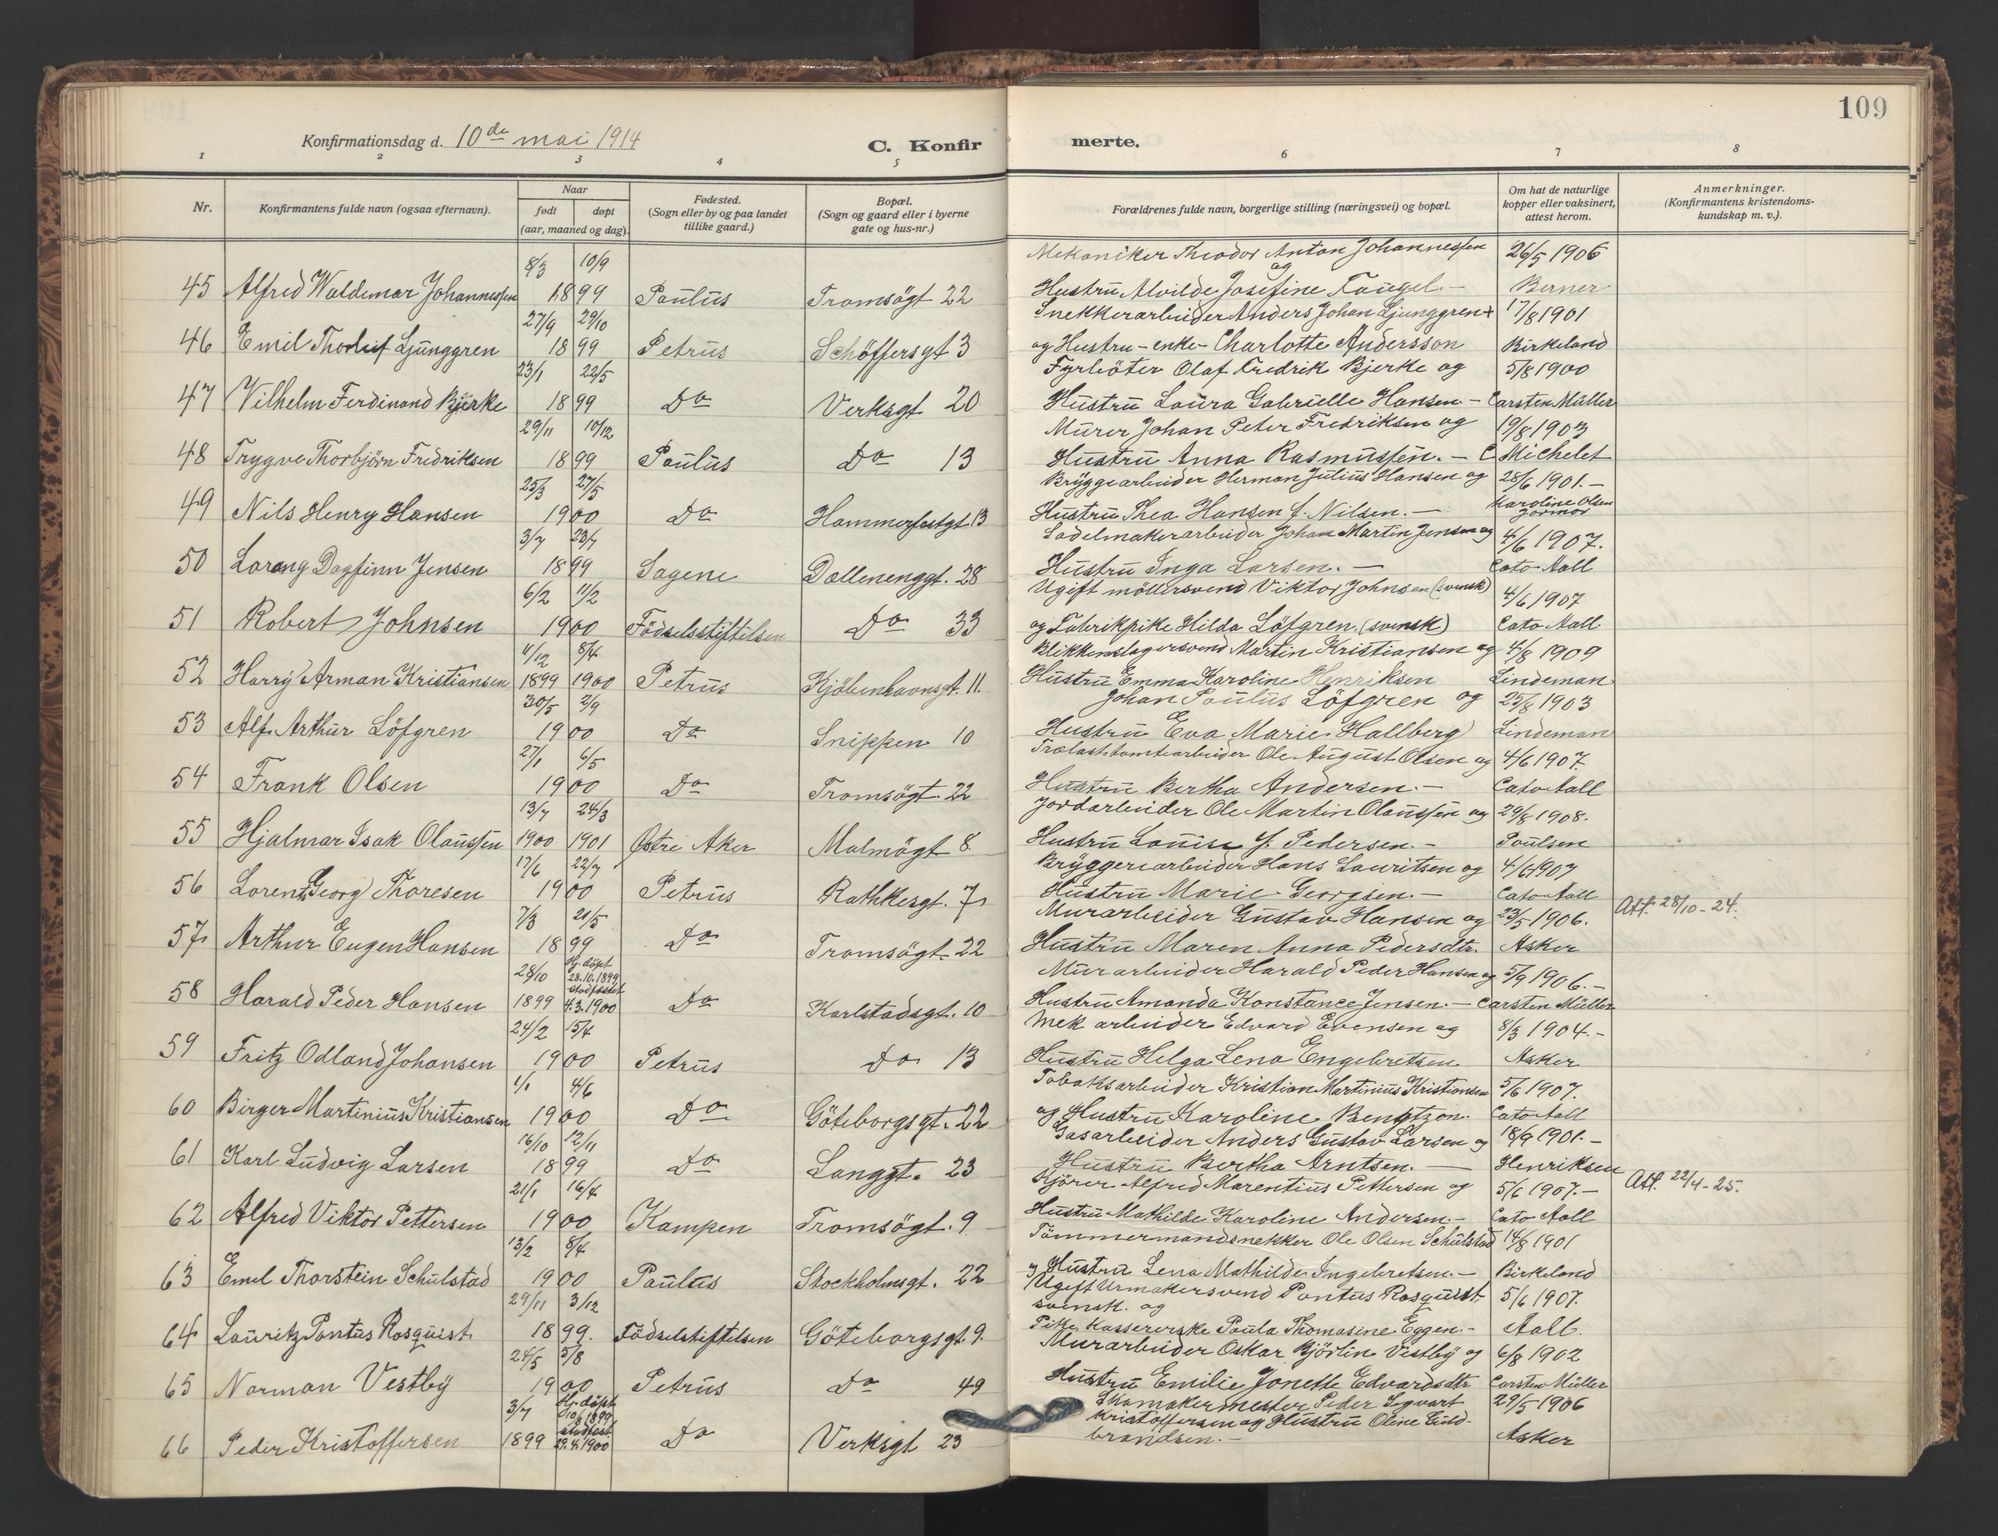 109
Konfirmationsdag d. 10de mai 1914
C. Konfir
merte.
1 2 3 4 5 6 7 8
Nr.
Konfirmantens fulde navn (ogsaa efternavn).
Naar
født døpt
(aar, maaned og dag).
Fødested.
(Sogn eller by og paa landet
tillike gaard.)
Bopæl.
(Sogn og gaard eller i byerne
gate og hus-nr.)
Forældrenes fulde navn, borgerlige stilling (næringsvei) og bopæl.
Om hat de naturlige
kopper eller vaksinert,
attest herom.
Anmerkninger.
(Konfirmantens kristendoms-
kundskap m. v.).
8/3 10/9 Mekaniker Theodor Anton Johannessen 26/5 1906
og
45 Alfred Waldemar Johannessen 1899 Paulus Tromsögt 22 Hustru Alvilde Josefine Faugel.- Berner
27/9 29/10 Snekkerarbeider Anders Johan Ljunggren + 17/8 1901
46 Emil Thorleif Ljunggren 1899 Petrus Schöffersgt 3 og Hustru - enke - Charlotte Andersson Birkeland
23/1 22/5 Fyrböter Olaf Fredrik Bjerke og 5/8 1900
47 Vilhelm Ferdinand Bjerke 1899 Do Verksgt 20 Hustru Laura Gabrielle Hansen - Carsten Müller
29/11 10/12 Murer Johan Peter Fredriksen og 19/8 1903
48 Trygve Thorbjörn Fredriksen 1899 Paulus Do 13 Hustru Anna Rasmussen. - C Michelet
25/3 27/5 Bryggearbeider Herman Julius Hansen og 28/6 1901.-
49 Nils Henry Hansen 1900 Do Hammerfestgt 13 Hustru Thea Hansen f. Nilsen. - Karoline Olsen
Jormor
3/7 23/7 Sadelmakerarbeider Johan Martin Jensen og 4/6 1907.
50 Lorang Dagfinn Jensen 1899 Sagene Dællenenggt. 28 Hustru Inga Larsen. - Cato Aall
6/2 11/2 Ugift möllersvend Viktor Johnsen (svensk) 4/6 1907
51 Robert Johnsen 1900 Födselsstiftelsen Do 33 og Fabrikpike Hilda Löfgren (svensk) Cato Aall
11/12 8/4 Blikkenslagersvend Martin Kristiansen og 4/8 1909
52 Harry Arman Kristiansen 1899 1900 Petrus Kjöbenhavnsgt. 11. Hustru Emma Karoline Henriksen Lindeman
30/5 2/9 Johan Paulus Löfgren og 25/8 1903
53 Alf Arthur Löfgren 1900 Do Snippen 10 Hustru Eva Marie Hallberg Lindeman
27/1 6/5 Trælasttomtearbeider Ole August Olsen og 4/6 1907.
54 Frank Olsen 1900 Do Tromsögt. 22 Hustru Bertha Andersen. - Cato Aall
13/7 24/3 Jordarbeider Ole Martin Olaussen og 29/8 1908.
55 Hjalmar Isak Olaussen 1900 1901 Östre Aker Malmögt 8. Hustru Louise f. Pedersen. - Poulsen
17/6 22/7 Bryggeriarbeider Hans Lauritsen og 4/6 1907
56 Lorentz Georg Thoresen 1900 Petrus Rathkesgt. 7, Hustru Marie Georgsen - Cato Aall
7/3 21/5 Murarbeider Gustav Hansen og 23/5 1906. Att. 28/10 - 24.
57, Arthur Eugen Hansen 1899 Do Tromsögt. 22 Hustru Maren Anna Pedersdtr. Asker
28/10 Hj. döpt
28.10.1899
stadfæstet Murarbeider Harald Peder Hansen og 5/9 1906.-
58 Harald Peder Hansen 1899 4.3.1900 Do Karlstadsgt. 10 Hustru Amanda Konstance Jensen. - Carsten Müller
24/2 15/4 Mek arbeider Edvard Evensen og 8/3 1904.-
59 Fritz Odland Johansen 1900 Petrus Do 13 Hustru Helga Lena Engebretsen Asker
1/1 4/6 Tobaksarbeider Kristian Martinius Kristiansen 5/6 1907.
60 Birger Martinius Kristiansen 1900 Do Göteborgsgt. 22 og Hustru Karoline Bengtzon. Cato Aall
16/10 12/11 Gasarbeider Anders Gustav Larsen og 18/9 1901.-
61 Karl Ludvig Larsen 1899 Do Langgt. 23 Hustru Bertha Arntsen. - Henriksen
21/1 16/4 Kjörer Alfred Marentius Pettersen og 5/6 1907.- Att. 22/4 - 25.
62 Alfred Viktor Pettersen 1900 Kampen Tromsögt. 9. Hustru Mathilde Karoline Andersen. - Cato Aall
13/2 8/4 Tömmermandsnekker Ole Olsen Schulstad 14/8 1901
63 Emil Thorstein Schulstad 1900 Paulus Stockholmsgt. 22 og Hustru Lena Mathilde Ingebretsen. - Birkeland
29/11 3/12 Ugift Urmakersvend Pontus Rosquist. 5/6 1907.
svensk. og
64 Lauritz Pontus Rosquist. 1899. Födselstiftelsen Göteborgsgt 9. Pike, Kassererske Paula Thomasine Eggen. - Aall.
24/5 5/8 Murarbeider Oskar Björlin Vestby og 6/8 1902
65 Norman Vestby 1900 Petrus Do 49 Hustru Emilie Jonette Edvardsdtr Carsten Müller
3/7 Hj. döpt
1899
stadfæst. Skomakermester Peder Sigvart 29/5 1906
Kristoffersen og Hustru Oline Guld-
66 Peder Kristoffersen 1899 29.4.1900 Do Verksgt 23 brandsen. - Asker